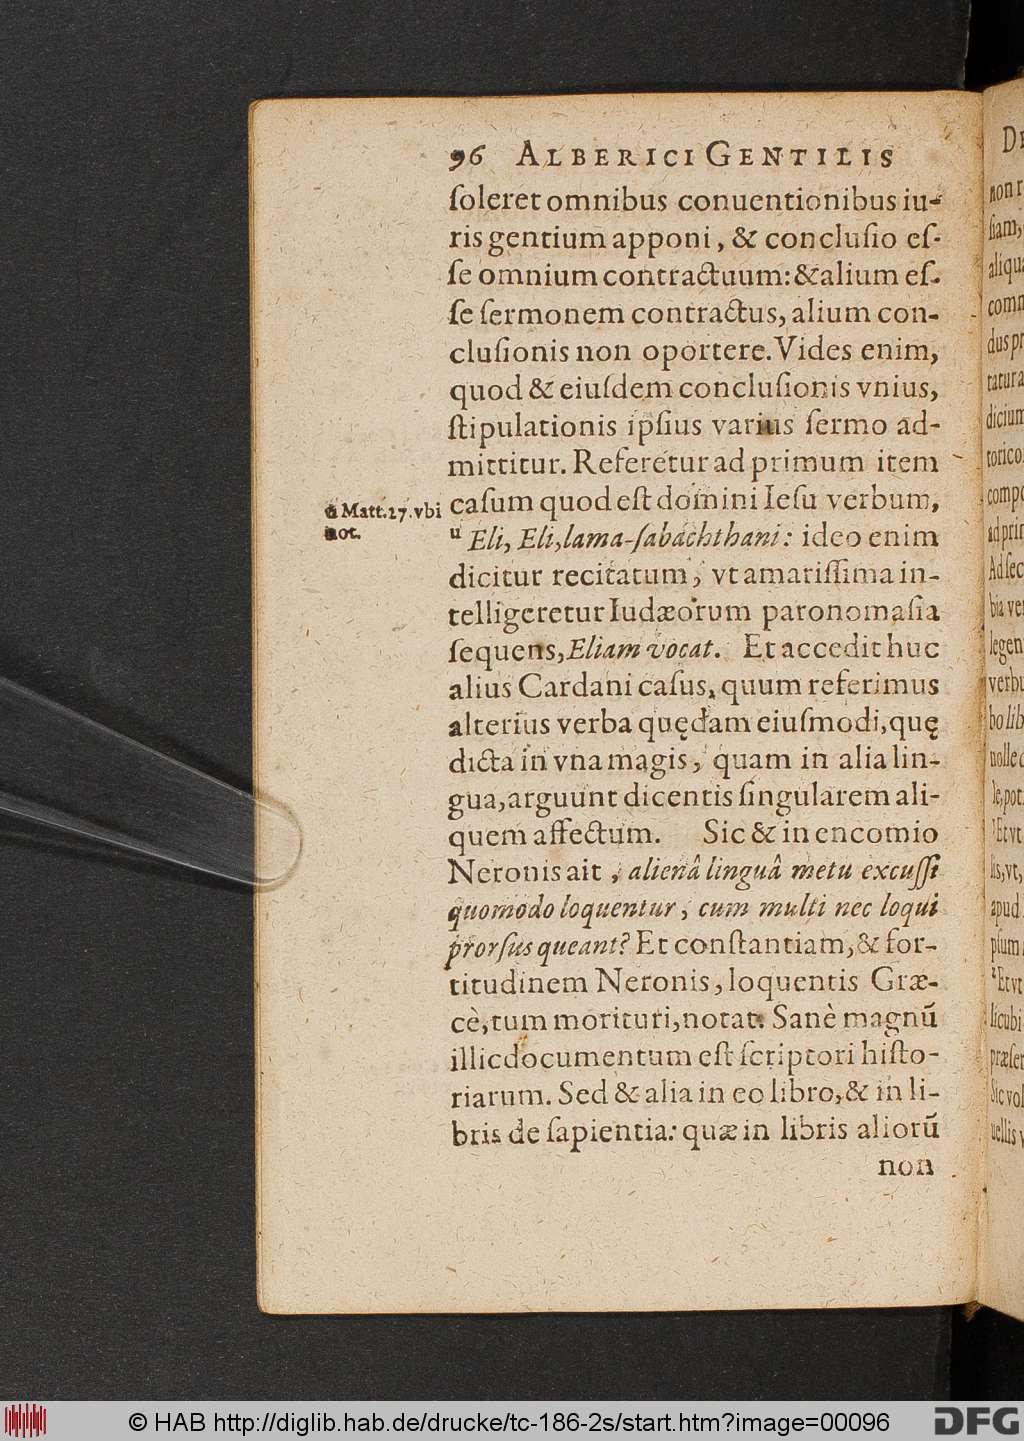 96 ALBERICI GENTILIS
ſoleret omnibus conuentionibus iu-
ris gentium apponi, & concluſio eſ-
ſe omnium contractuum: & alium eſ-
ſe ſermonem contractus, alium con-
cluſionis non oportere. Vides enim,
quod & eiuſdem concluſionis vnius,
ſtipulationis ipſius varius ſermo ad-
mittitur. Referetur ad primum item
caſum quod eſt domini Ieſu verbum,
u Matt.27.vbi
not.
u Eli, Eli, lama-ſabachthani: ideo enim
dicitur recitatum, vt amariſſima in-
telligeretur Iudæorum paronomaſia
ſequens, Eliam vocat. Et accedit huc
alius Cardani caſus, quum referimus
alterius verba quędam eiuſmodi, quę
dicta in vna magis, quam in alia lin-
gua, arguunt dicentis ſingularem ali-
quem affectum. Sic & in encomio
Neronis ait, alienâ linguâ metu excuſſi
quomodo loquentur, cum multi nec loqui
prorſus queant? Et conſtantiam, & for-
titudinem Neronis, loquentis Græ-
cè, tum morituri, notat. Sanè magnū
illic documentum eſt ſcriptori hiſto-
riarum. Sed & alia in eo libro, & in li-
bris de ſapientia: quæ in libris aliorū
non
non
ſiam,
aliqua
dus pr
tatura
dicium
torico
ad prir
Ad ſec
bia ve
legen
verbu
bo lib
nolle
le, pot
Et vt
lis, vt,
apud
pſum
Et vt
licubi
præſer
Sic vol
uellis
© HAB http://diglib.hab.de/drucke/tc-186-2s/start.htm?image=00096
DFG